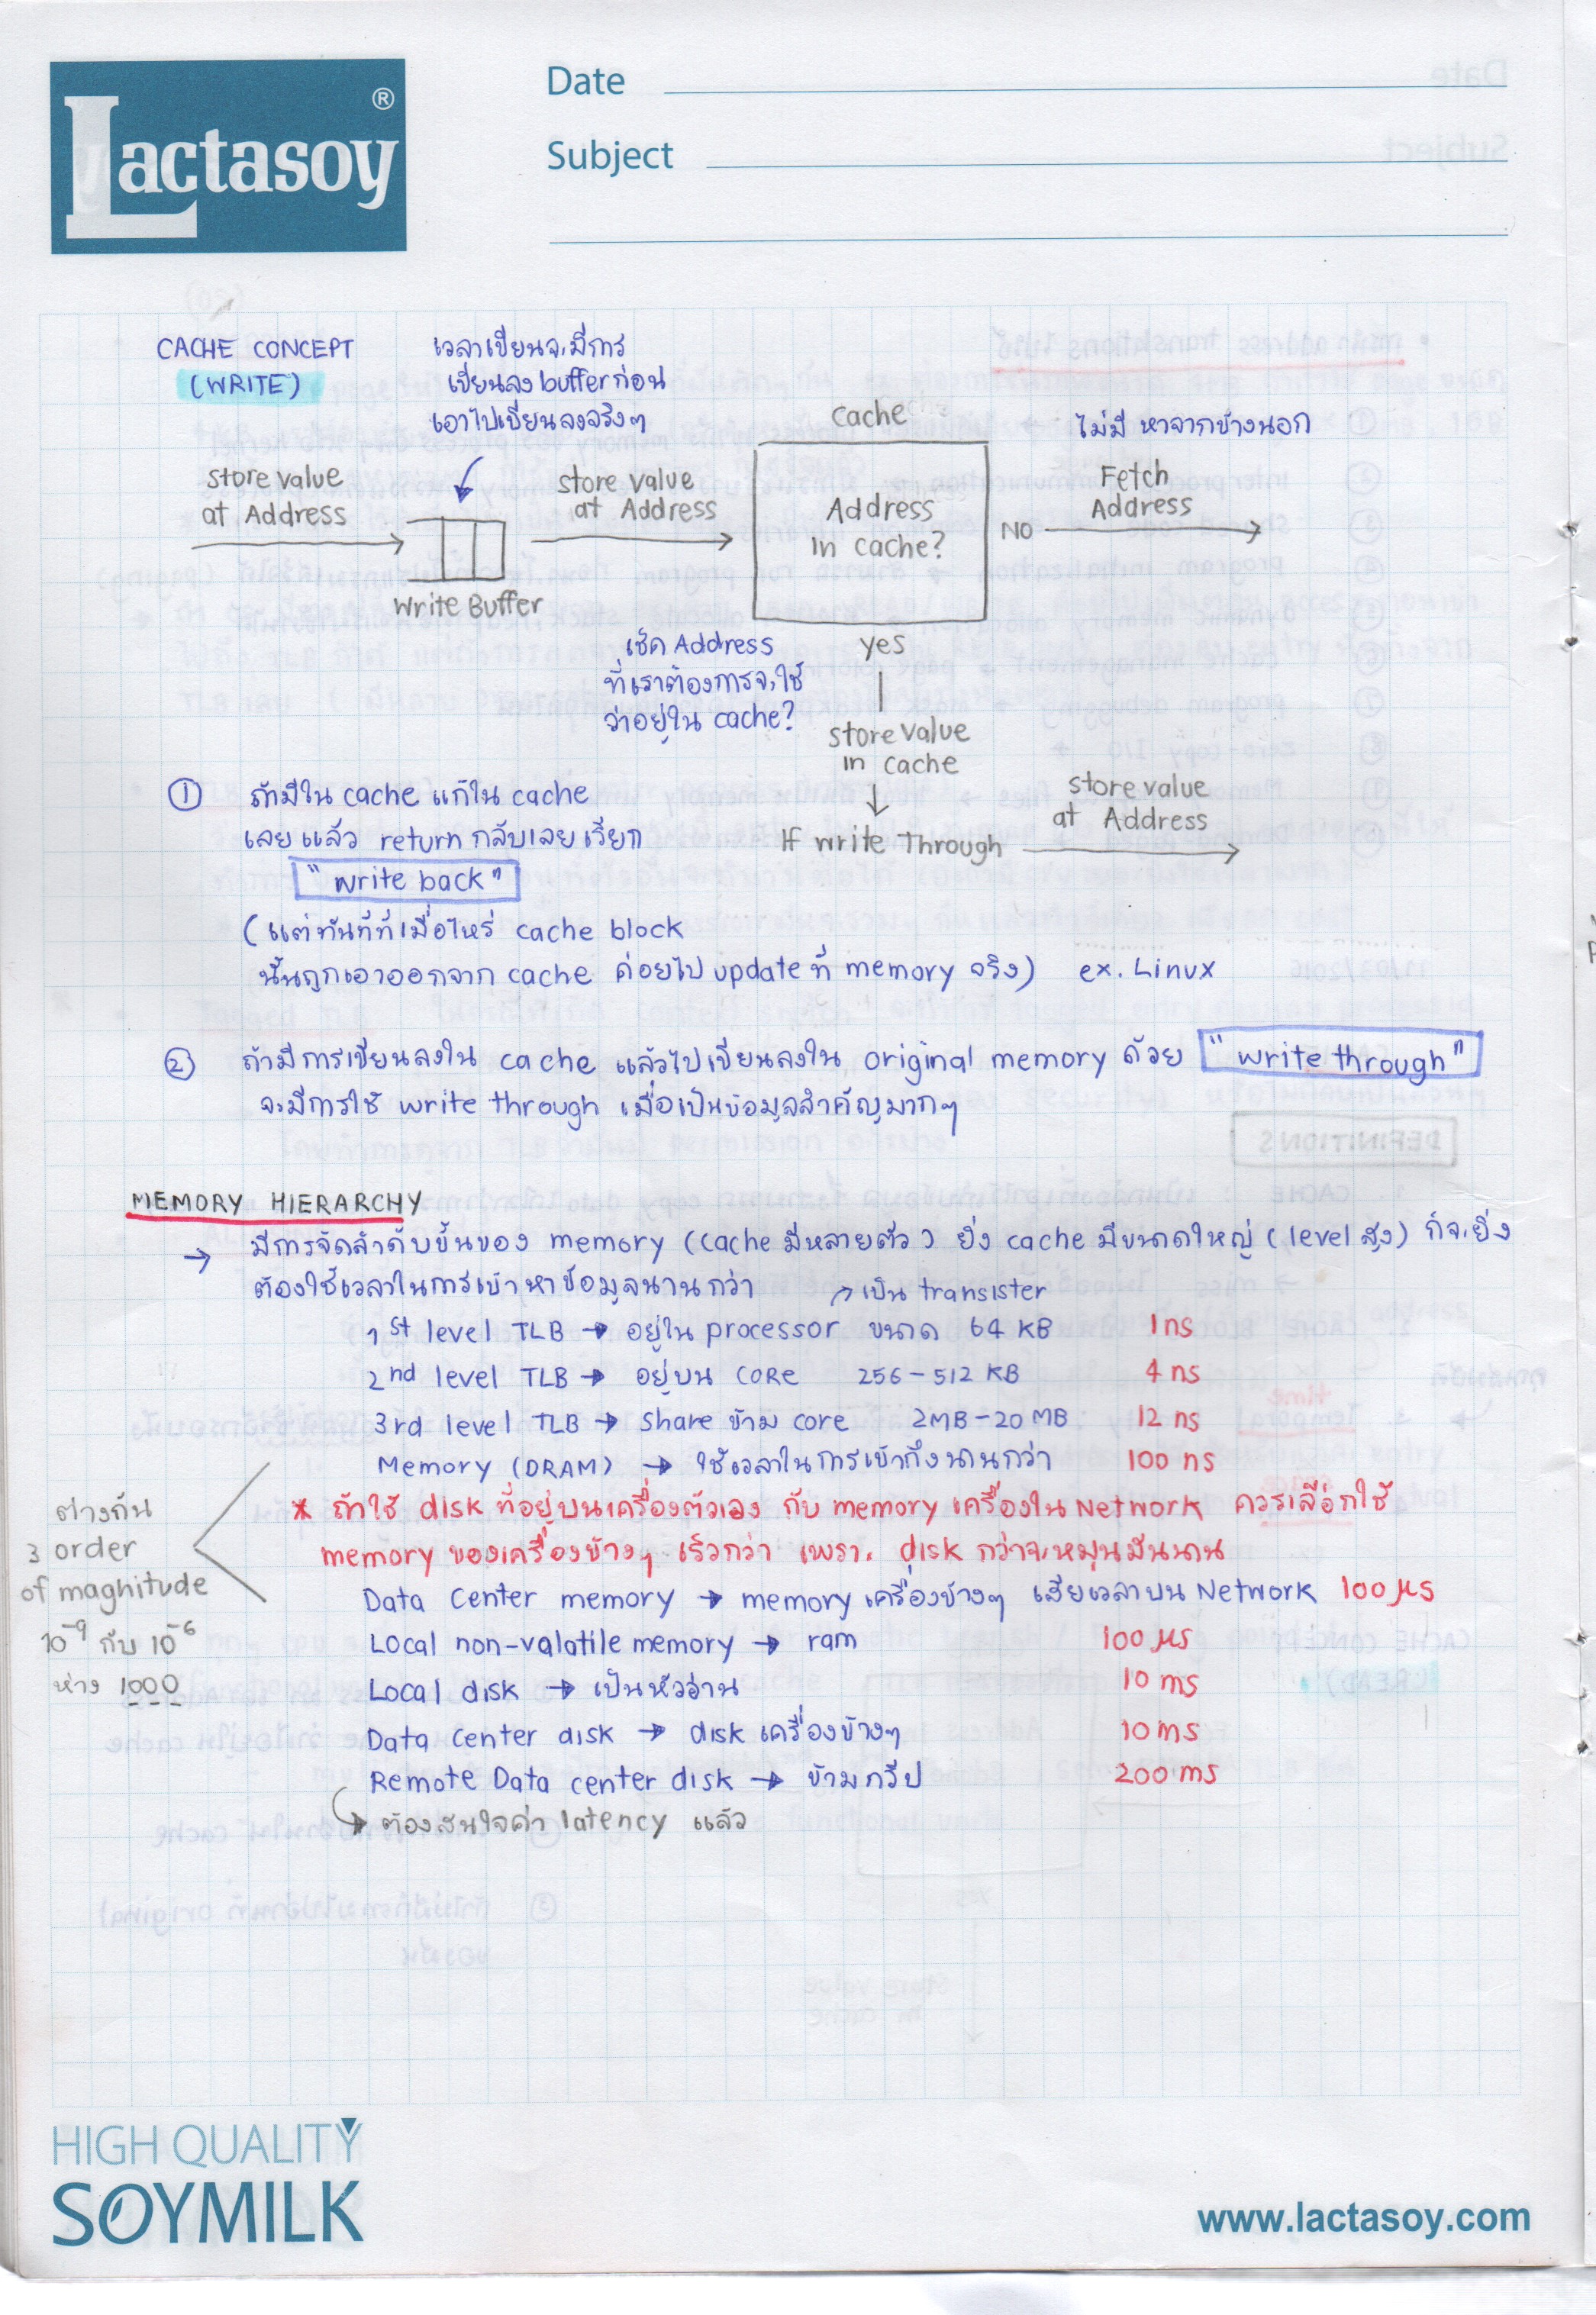 Lactasoy ®
Date
Subject
CACHE CONCEPT
(WRITE)
เวลาเขียนจะมีการ
เขียนลง buffer ก่อน
เอาไปเขียนลงจริงๆ
store value
at Address
Write Buffer
store value
at Address
cache
Address
in cache?
NO
ไม่มี หาจากข้างนอก
Fetch
Address
เช็ค Address
ที่เราต้องการจะใช้
ว่าอยู่ใน cache?
yes
store value
in cache
If write Through
store value
at Address
① ถ้ามีใน cache แก้ใน cache
เลย แล้ว return กลับเลย เรียก
"write back"
(แต่ทันทีที่เมื่อไหร่ cache block
นั้นถูกเอาออกจาก cache ค่อยไป update ที่ memory จริง) ex. Linux
② ถ้ามีการเขียนลงใน cache แล้วไปเขียนลงใน original memory ด้วย "write through"
จะมีการใช้ write through เมื่อเป็นข้อมูลสำคัญมากๆ
MEMORY HIERARCHY
→ มีการจัดลำดับขั้นของ memory (cache มีหลายตัว) ยิ่ง cache มีขนาดใหญ่ (level สูง) ก็จะยิ่ง
ต้องใช้เวลาในการเข้าหาข้อมูลนานกว่า
↗ เป็น transister
1st level TLB → อยู่ใน processor ขนาด 64 KB 1 ns
2nd level TLB → อยู่บน core 256-512 KB 4 ns
3rd level TLB → share ข้าม core 2MB-20 MB 12 ns
Memory (DRAM) → ใช้เวลาในการเข้าถึงนานกว่า 100 ns
* ถ้าใช้ disk ที่อยู่บนเครื่องตัวเอง กับ memory เครื่องใน Network ควรเลือกใช้
memory ของเครื่องข้างๆ เร็วกว่า เพราะ disk กว่าจะหมุนมันนาน
ต่างกัน
3 order
of maghitude
10⁻⁹ กับ 10⁻⁶
ห่าง 1000
Data Center memory → memory เครื่องข้างๆ เสียเวลาบน Network 100 μs
Local non-valatile memory → ram 100 μs
Local disk → เป็นหัวอ่าน 10 ms
Data center disk → disk เครื่องข้างๆ 10 ms
Remote Data center disk → ข้ามทวีป 200 ms
↳ ต้องสนใจค่า latency แล้ว
HIGH QUALITY
SOYMILK
www.lactasoy.com